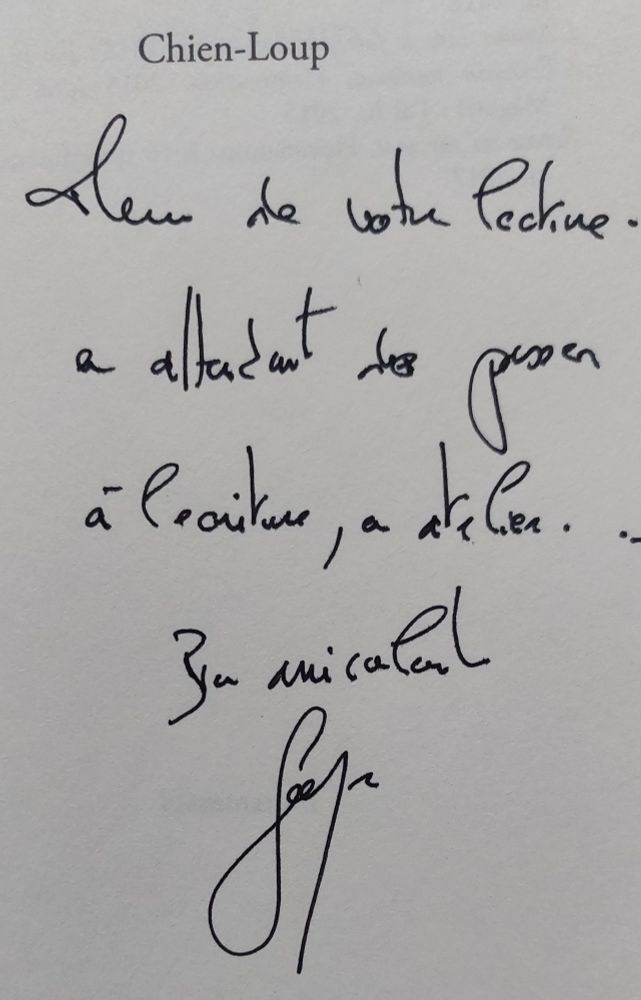 Chien-Loup
Heureux de votre lecture.
en attendant de passer
à l'écriture, en atelier...
Bien amicalement